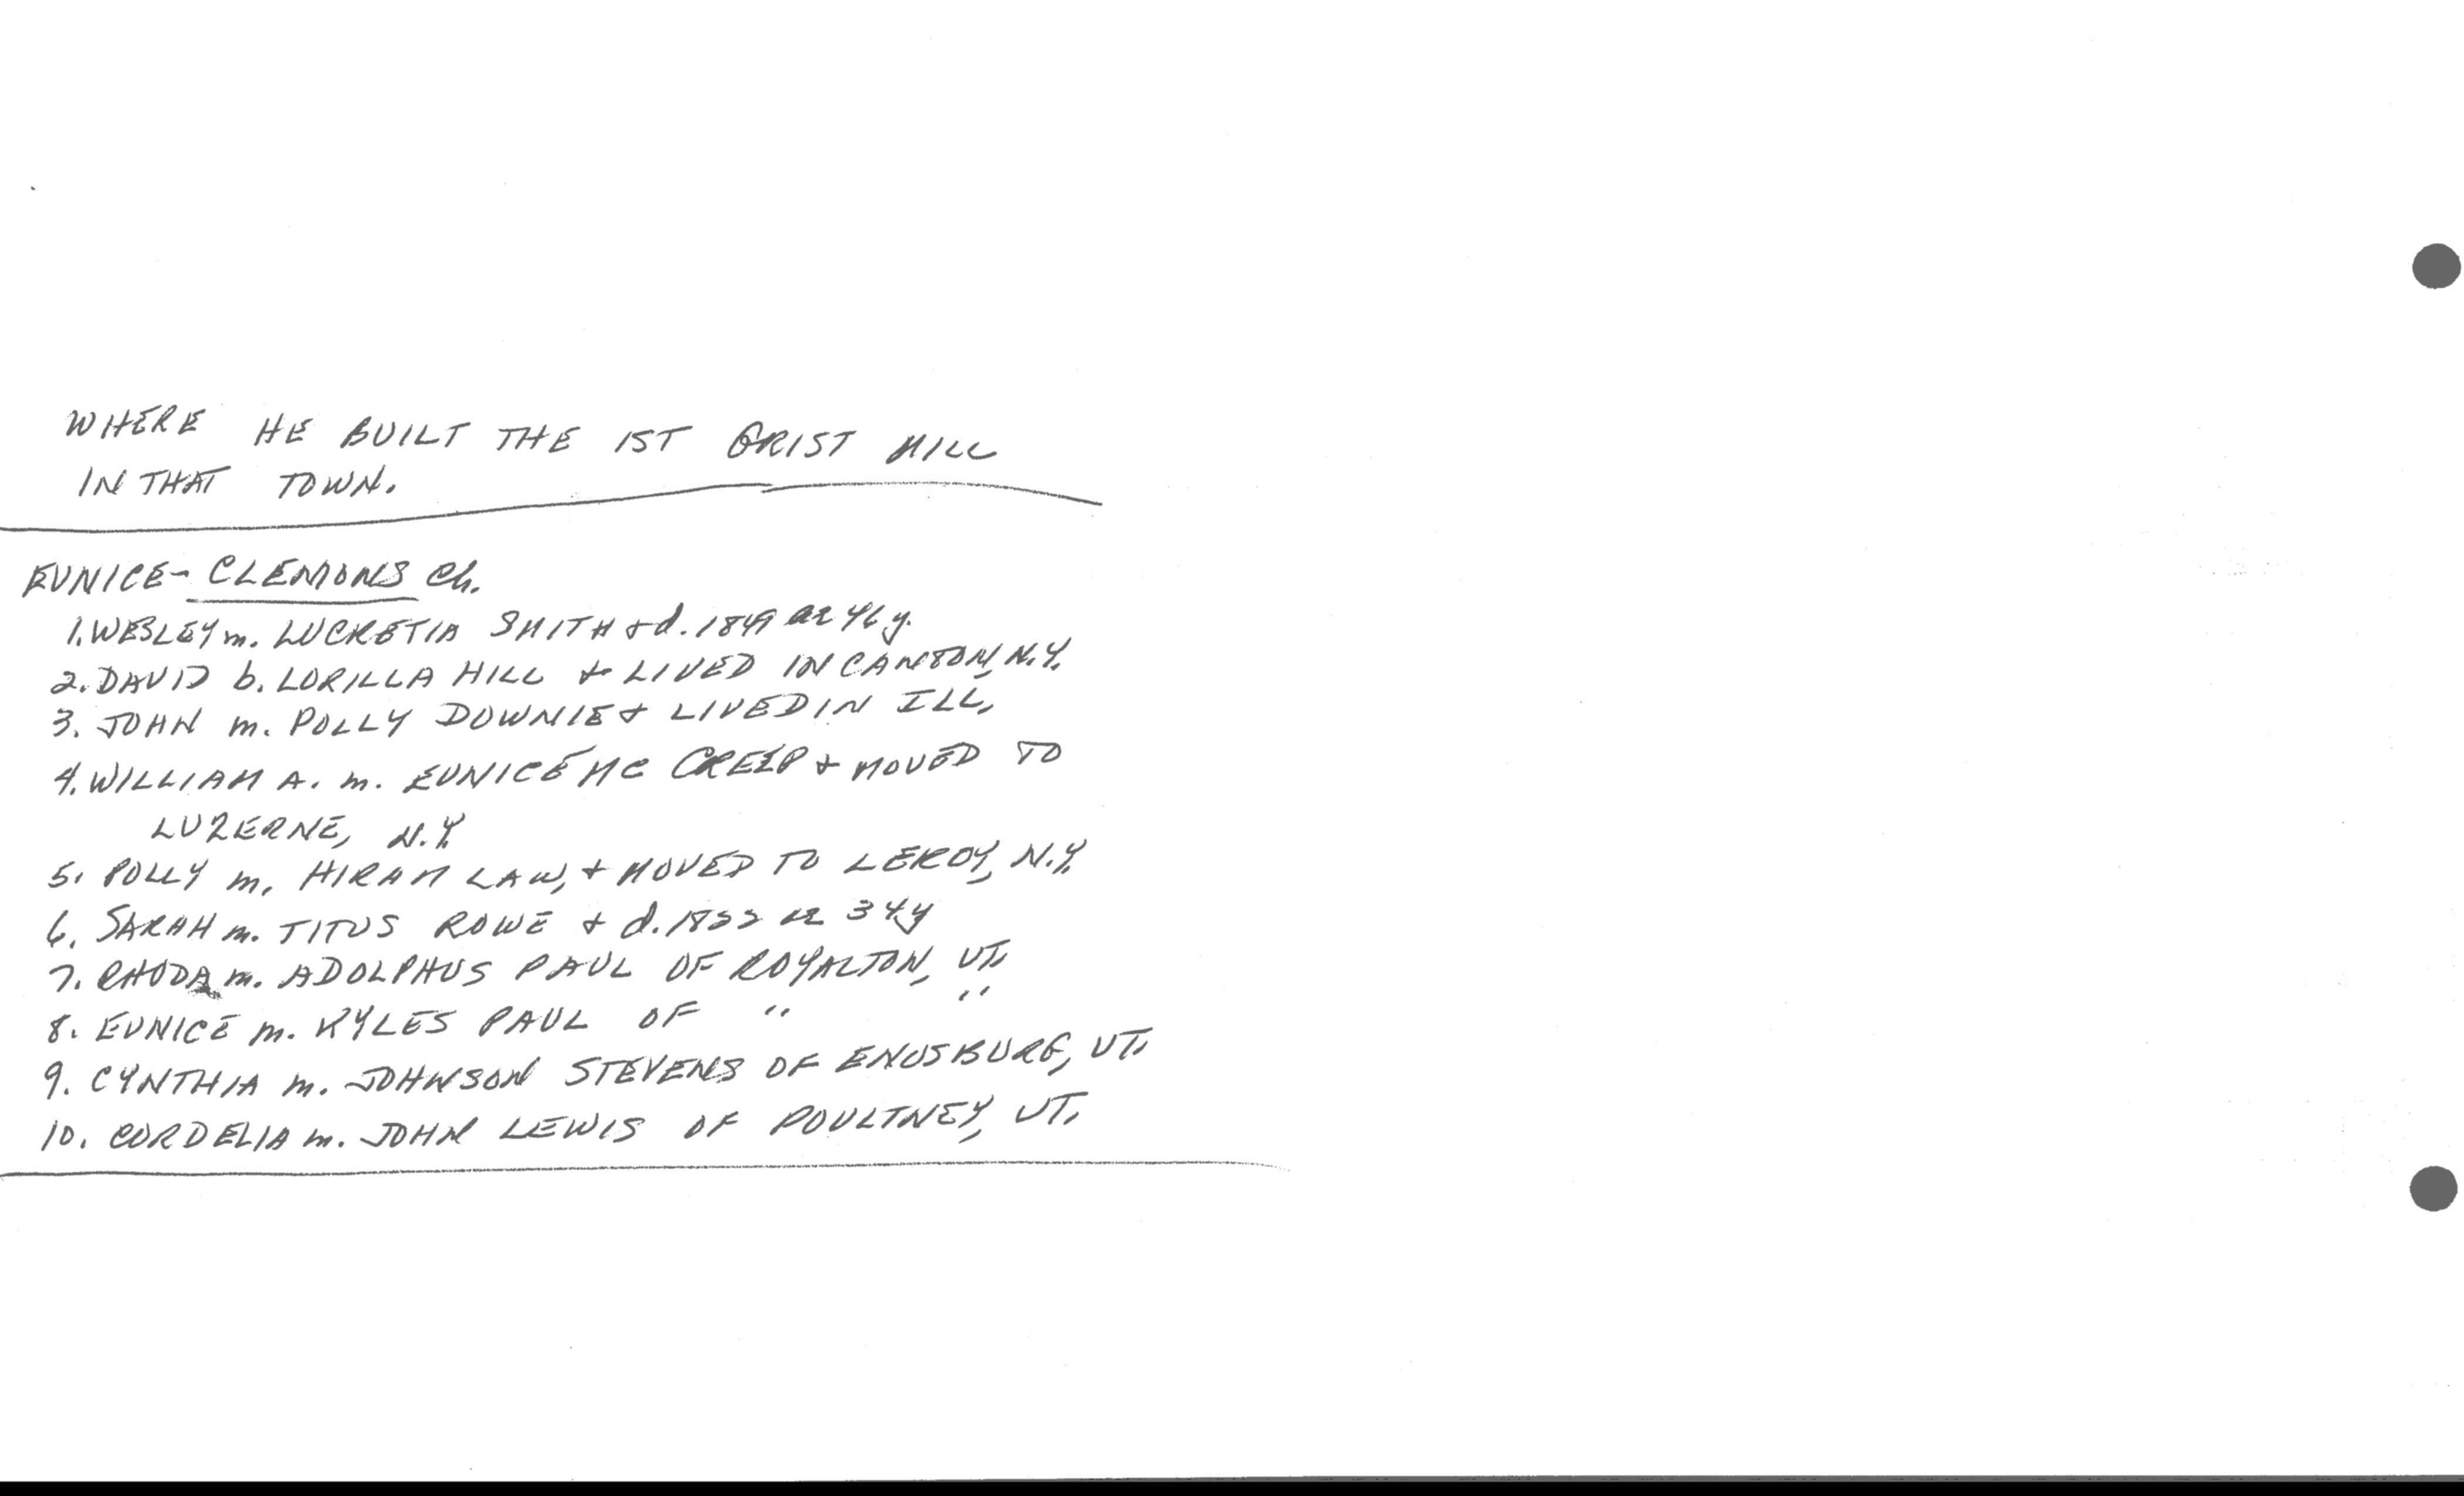 WHERE HE BUILT THE 1ST GRIST MILL
IN THAT TOWN.
EUNICE- CLEMONS Ch.
1. WESLEY m. LUCRETIA SMITH & d. 1849 ae 46 y.
2. DAVID b. LORILLA HILL & LIVED IN CANTON, N.Y.
3. JOHN m. POLLY DOWNIE & LIVED IN ILL.
4. WILLIAM A. m. EUNICE MC & MOVED TO
LUZERNE, N.Y.
5. POLLY m. HIRAM LAW, & MOVED TO LEROY, N.Y.
6. SARAH m. TITUS ROWE & d. ae 34 y
7. RHODA m. ADOLPHUS PAUL OF ROYALTON, VT.
8. EUNICE m. KYLES PAUL OF " "
9. CYNTHIA m. JOHNSON STEVENS OF ENOSBURG, VT.
10. CORDELIA m. JOHN LEWIS OF POULTNEY, VT.